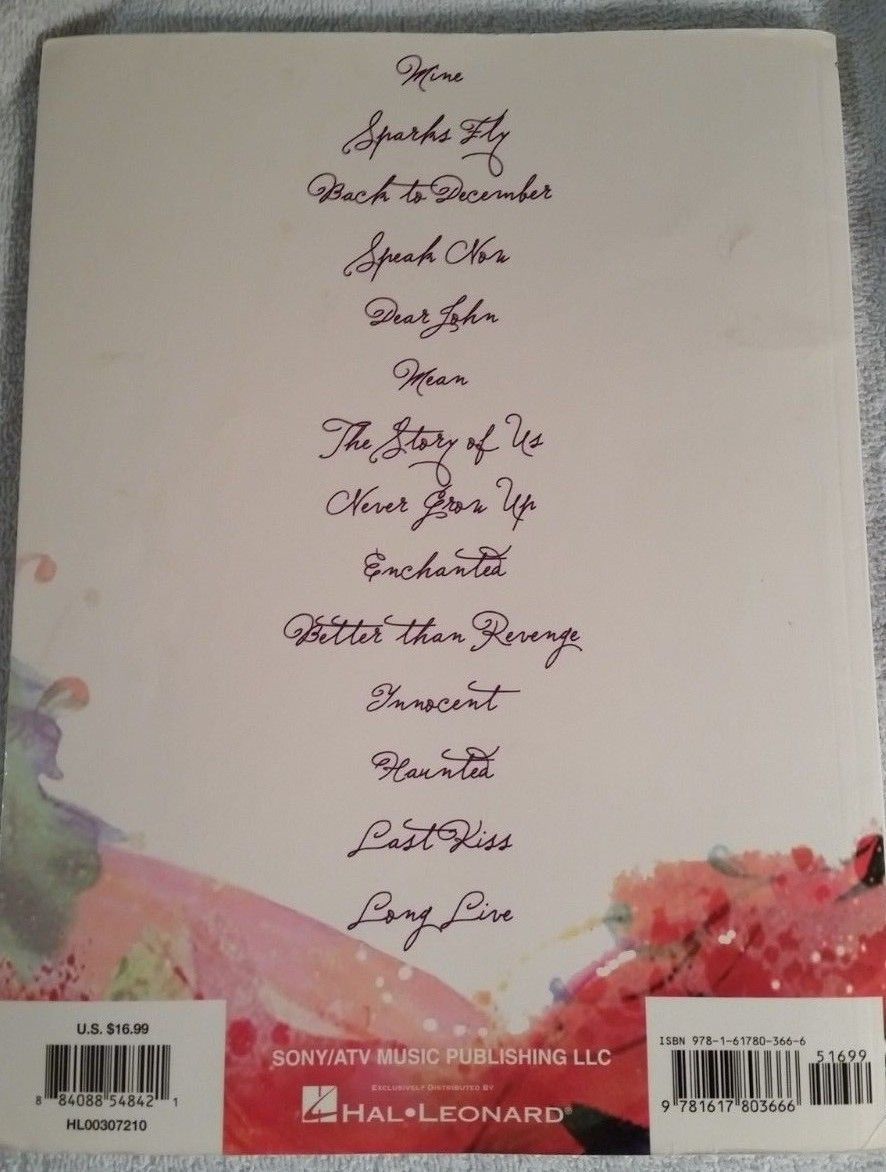 Mine
Sparks Fly
Back to December
Speak Now
Dear John
Mean
The Story of Us
Never Grow Up
Enchanted
Better than Revenge
Innocent
Haunted
Last Kiss
Long Live
U.S. $16.99
8 84088 54842 1
HL00307210
SONY/ATV MUSIC PUBLISHING LLC
EXCLUSIVELY DISTRIBUTED BY
HAL•LEONARD®
ISBN 978-1-61780-366-6
51699
9 781617 803666